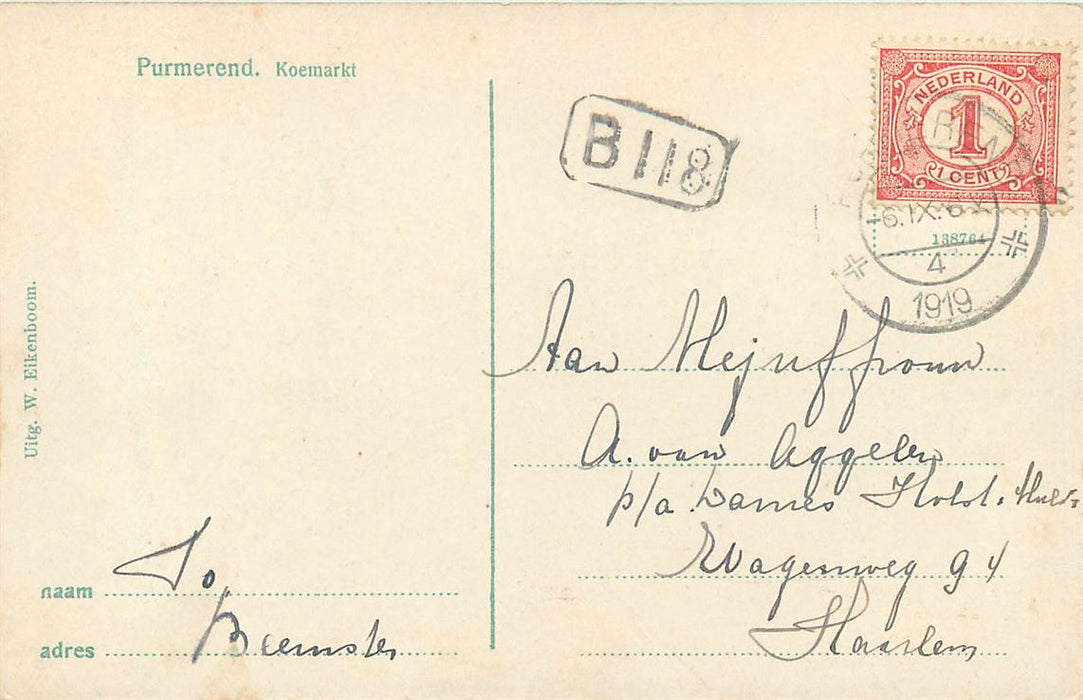 Purmerend. Koemarkt
B 118
NEDERLAND
1
1 CENT
6.IX.
138764
4
1919
Uitg. W. Eikenboom.
Aan Mejuffrouw
A. van Aggelen
p/a. Dames Holst.
Wagenweg 94
Haarlem
naam Jo
adres Beemster